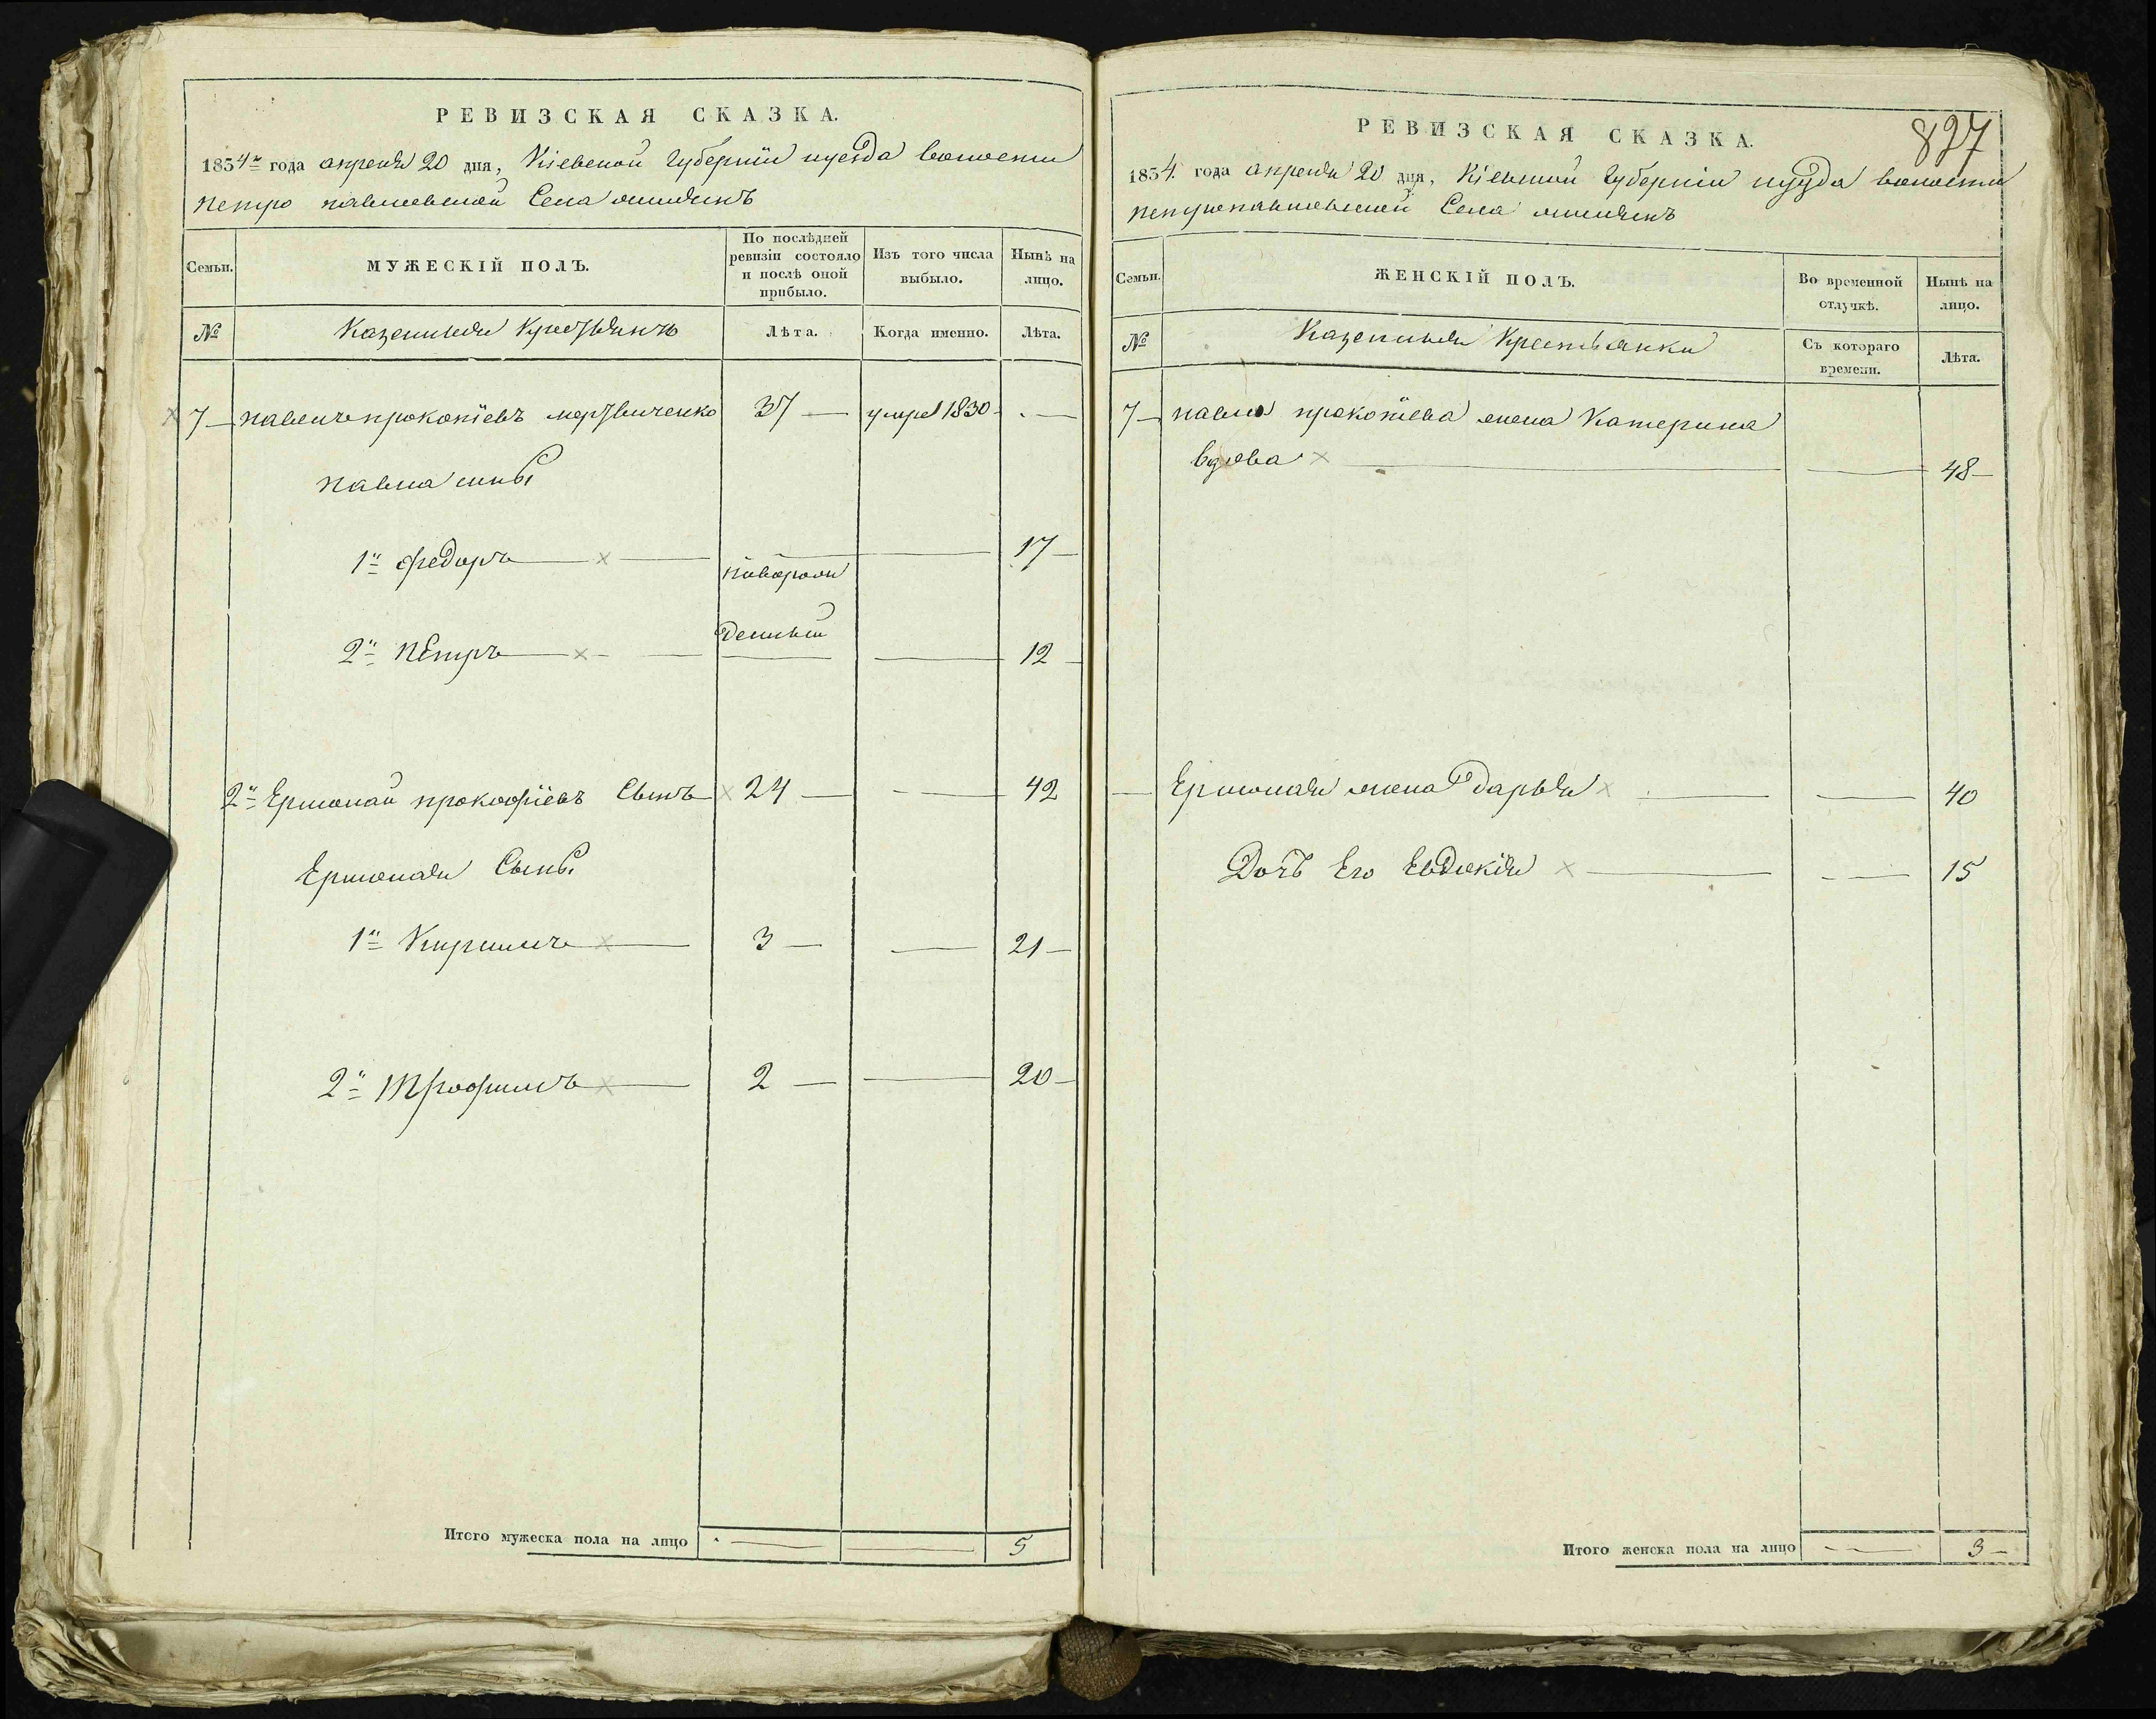 РЕВИЗСКАЯ СКАЗКА.
1834го года апреля 20 дня, Кіевской губерніи и уезда волости
петро павловской Села
Семьи.
МУЖЕСКІЙ ПОЛЪ.
По послѣдней ревизіи состояло и послѣ оной прибыло.
Изъ того числа выбыло.
Нынѣ на лицо.
№
Казенныя Крестьянъ
Лѣта.
Когда именно.
Лѣта.
7 павелъ прокопіевъ 37 умре 1830
павла сины
1й федоръ 17
2й петръ 12
2й Ермолай прокофіевъ Сынъ 24 42
Ермолая Сыны
1й Кирилъ 3 21
2й Трофимъ 2 20
Итого мужеска пола на лицо 5
827
РЕВИЗСКАЯ СКАЗКА.
1834. года апреля 20 дня, Кіевской губерніи и уезда волости
петропавловской Села
Семьи.
ЖЕНСКІЙ ПОЛЪ.
Во временной отлучкѣ.
Нынѣ на лицо.
№
Казенныя Крестьянки
Съ котораго времени.
Лѣта.
7 павла прокопіева жена Катерина
вдова 48
Ермолая жена Дарья 40
Дочь Его Евдокія 15
Итого женска пола на лицо 3